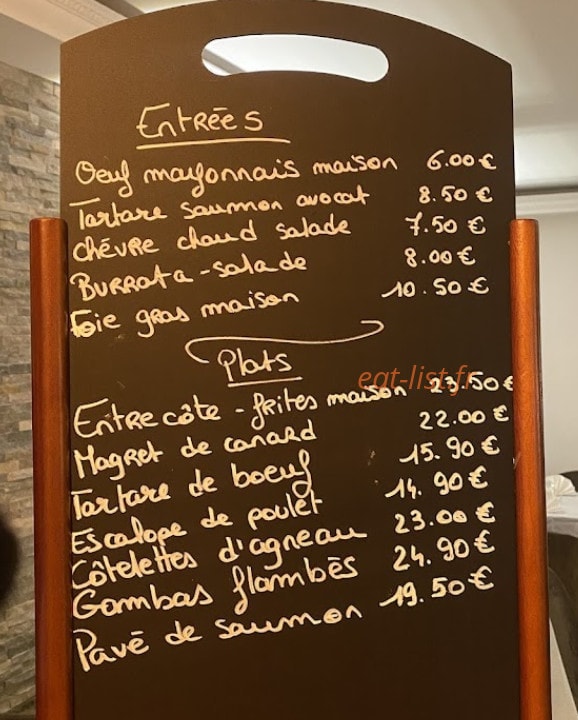 Entrées
Oeuf mayonnais maison 6.00 €
Tartare saumon avocat 8.50 €
chèvre chaud salade 7.50 €
Burrata - salade 8.00 €
Foie gras maison 10.50 €
Plats
eat-list.fr
Entrecôte - frites maison 23.50 €
Magret de canard 22.00 €
Tartare de boeuf 15.90 €
Escalope de poulet 14.90 €
Côtelettes d'agneau 23.00 €
Gambas flambès 24.90 €
Pavé de saumon 19.50 €